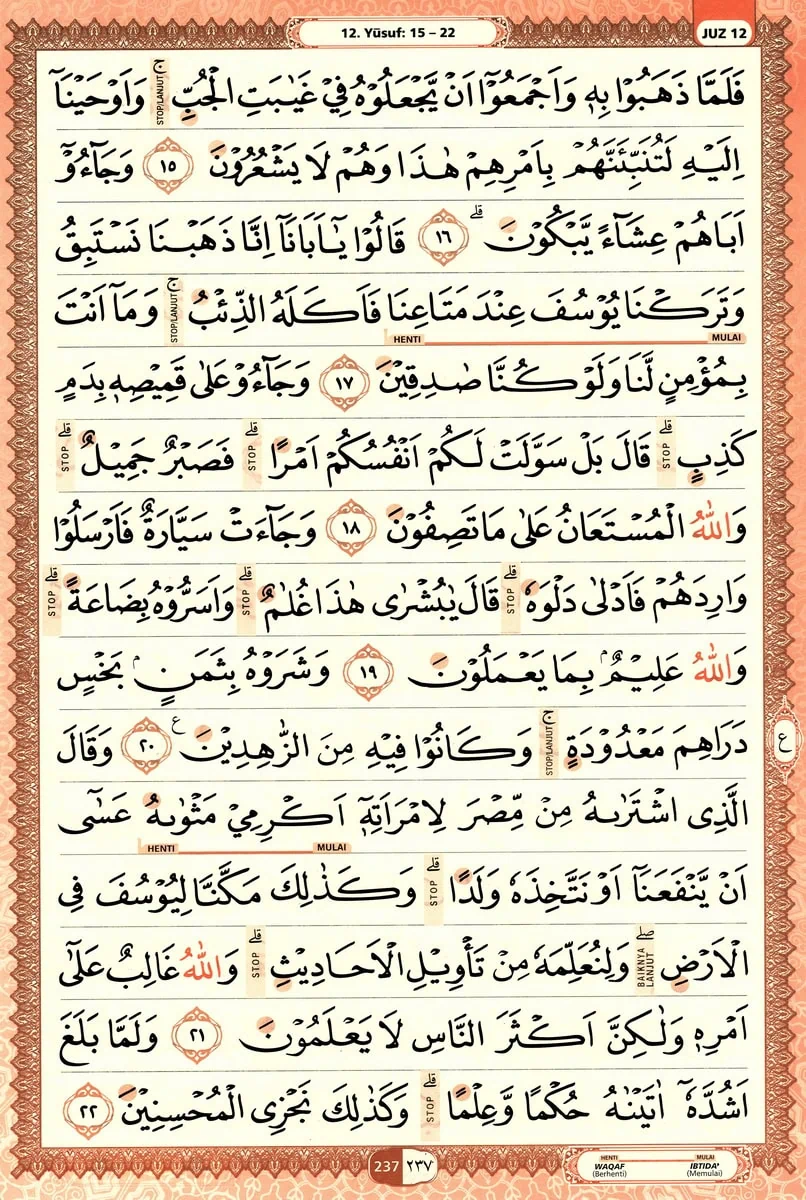 12. Yūsuf: 15 – 22
JUZ 12
فَلَمَّا ذَهَبُوْا بِهٖ وَاَجْمَعُوْٓا اَنْ يَّجْعَلُوْهُ فِيْ غَيٰبَتِ الْجُبِّۚ STOP/LANJUT وَاَوْحَيْنَآ
اِلَيْهِ لَتُنَبِّئَنَّهُمْ بِاَمْرِهِمْ هٰذَا وَهُمْ لَا يَشْعُرُوْنَ ١٥ وَجَاۤءُوْٓ
اَبَاهُمْ عِشَاۤءً يَّبْكُوْنَۗ ١٦ قَالُوْا يٰٓاَبَانَآ اِنَّا ذَهَبْنَا نَسْتَبِقُ
وَتَرَكْنَا يُوْسُفَ عِنْدَ مَتَاعِنَا فَاَكَلَهُ الذِّئْبُۚ STOP/LANJUT وَمَآ اَنْتَ
MULAI HENTI
بِمُؤْمِنٍ لَّنَا وَلَوْ كُنَّا صٰدِقِيْنَ ١٧ وَجَاۤءُوْ عَلٰى قَمِيْصِهٖ بِدَمٍ
كَذِبٍۗ STOP قَالَ بَلْ سَوَّلَتْ لَكُمْ اَنْفُسُكُمْ اَمْرًاۗ STOP فَصَبْرٌ جَمِيْلٌۗ STOP
وَاللّٰهُ الْمُسْتَعَانُ عَلٰى مَا تَصِفُوْنَ ١٨ وَجَاۤءَتْ سَيَّارَةٌ فَاَرْسَلُوْا
وَارِدَهُمْ فَاَدْلٰى دَلْوَهٗۗ STOP قَالَ يٰبُشْرٰى هٰذَا غُلٰمٌۗ STOP وَاَسَرُّوْهُ بِضَاعَةًۗ STOP
وَاللّٰهُ عَلِيْمٌۢ بِمَا يَعْمَلُوْنَ ١٩ وَشَرَوْهُ بِثَمَنٍۢ بَخْسٍ
دَرَاهِمَ مَعْدُوْدَةٍۚ STOP/LANJUT وَكَانُوْا فِيْهِ مِنَ الزّٰهِدِيْنَ ࣖ ٢٠ وَقَالَ
ع
الَّذِى اشْتَرٰىهُ مِنْ مِّصْرَ لِامْرَاَتِهٖٓ اَكْرِمِيْ مَثْوٰىهُ عَسٰٓى
MULAI HENTI
اَنْ يَّنْفَعَنَآ اَوْ نَتَّخِذَهٗ وَلَدًاۗ STOP وَكَذٰلِكَ مَكَّنَّا لِيُوْسُفَ فِى
الْاَرْضِۖ BAIKNYA LANJUT وَلِنُعَلِّمَهٗ مِنْ تَأْوِيْلِ الْاَحَادِيْثِۗ STOP وَاللّٰهُ غَالِبٌ عَلٰٓى
اَمْرِهٖ وَلٰكِنَّ اَكْثَرَ النَّاسِ لَا يَعْلَمُوْنَ ٢١ وَلَمَّا بَلَغَ
اَشُدَّهٗٓ اٰتَيْنٰهُ حُكْمًا وَّعِلْمًاۗ STOP وَكَذٰلِكَ نَجْزِى الْمُحْسِنِيْنَ ٢٢
237 ٢٣٧
HENTI MULAI
WAQAF IBTIDA'
(Berhenti) (Memulai)